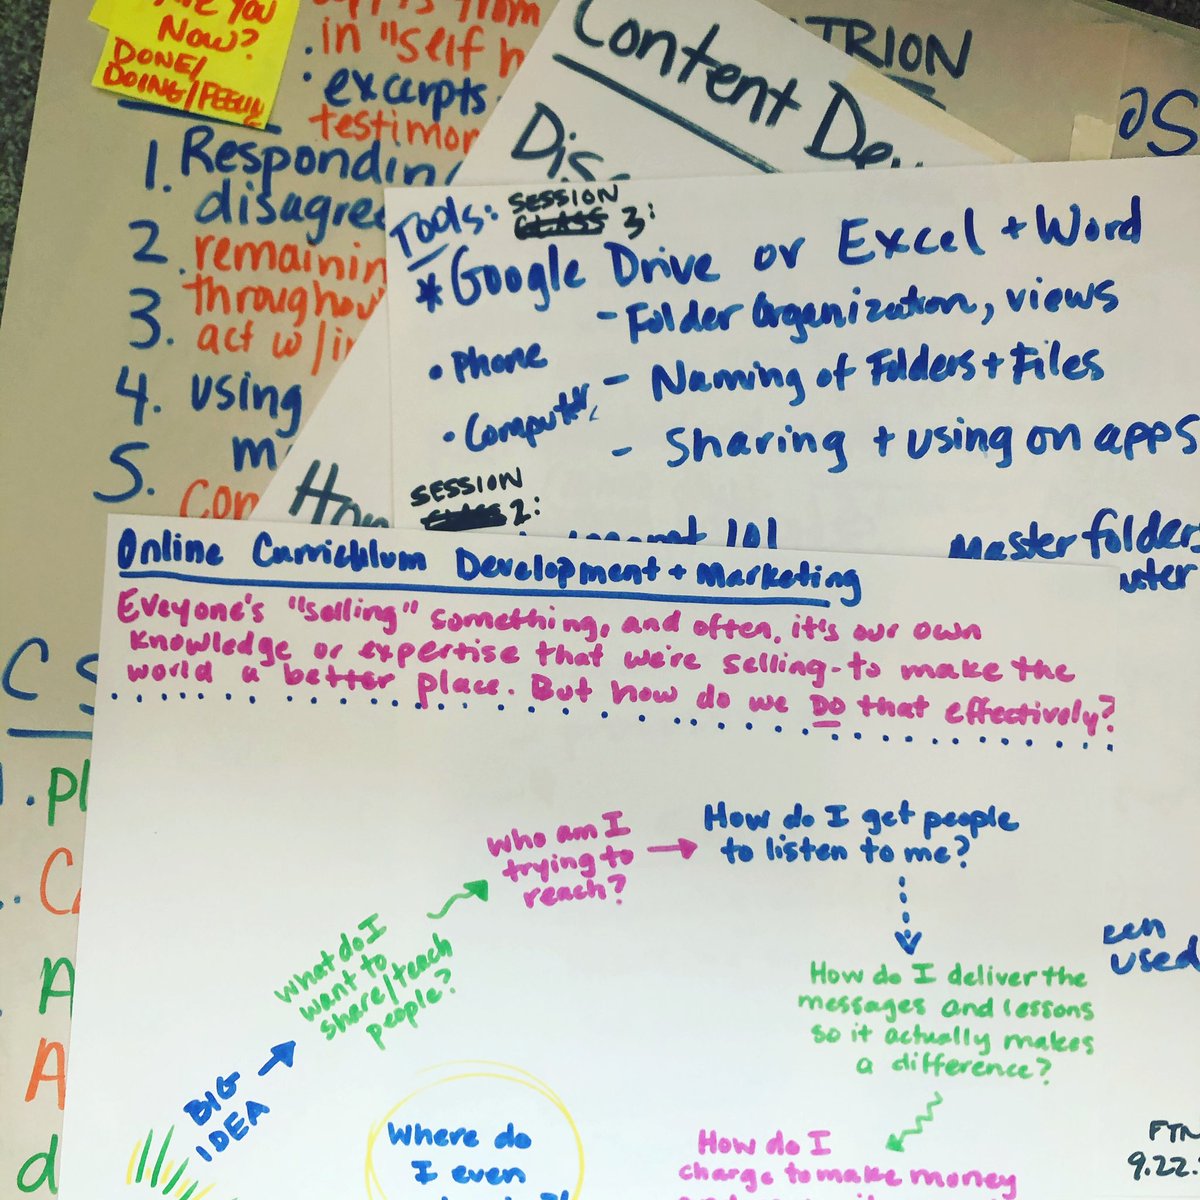 YOU
NOW?
DONE/
DOING/FEELING
from
in "self h
• excerpts
testimon
1. Respondin
disagree
2. remainin
3. throughou
act w/in
4. using
m
5.
con
Content De
TRION
Dis
How
Tools: SESSION 3:
CLASS
* Google Drive or Excel + Word
- Folder Organization, views
• Phone
- Naming of Folders + Files
• Computer,
- Sharing + using on apps
SESSION 2:
101
Master folders
Online Curriculum Development + Marketing
Eveyone's "selling" something, and often, it's our own
knowledge or expertise that we're selling - to make the
world a better place. But how do we DO that effectively?
C S
1. Pl
A
A
d
BIG
IDEA
What do I
want to
share/teach
people?
Who am I
trying to
reach?
How do I get people
to listen to me?
een
used
How do I deliver the
messages and lessons
so it actually makes
a difference?
Where do
I even
How do I
charge to make money
FTN
9.22.